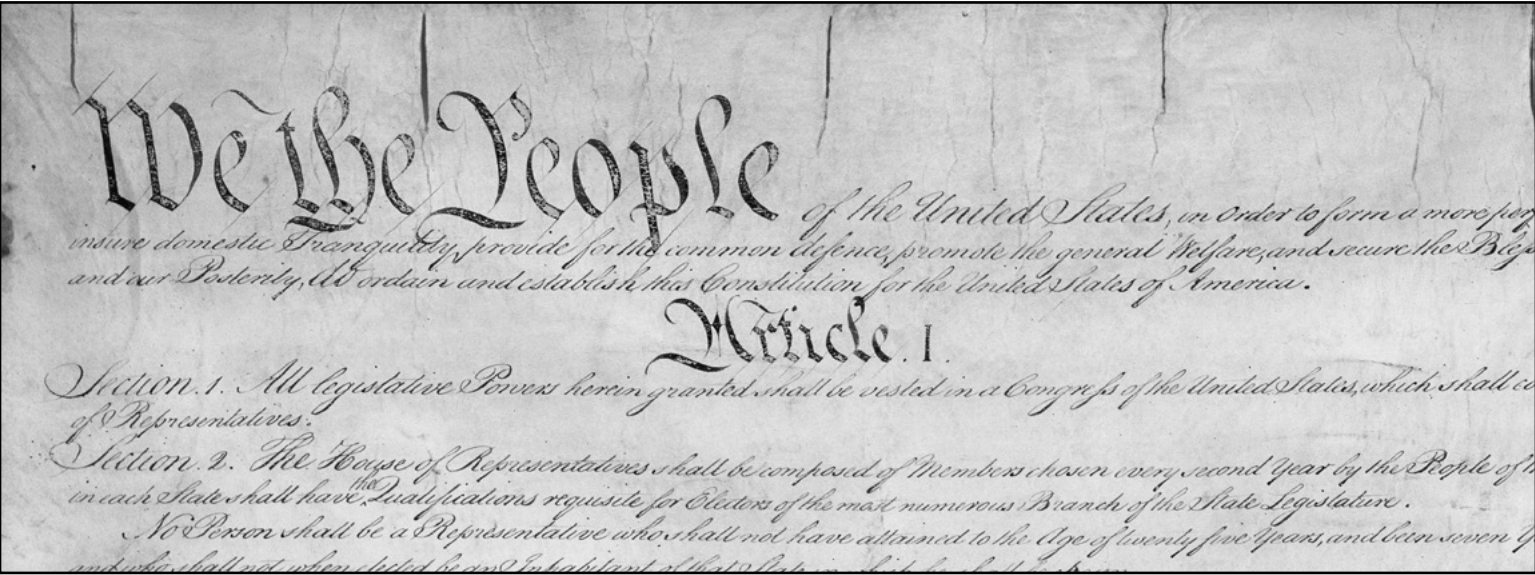 We the People of the United States, in Order to form a more per
insure domestic Tranquility, provide for the common defence, promote the general Welfare, and secure the Bless
and our Posterity, do ordain and establish this Constitution for the United States of America.
Article. I.
Section. 1. All legislative Powers herein granted shall be vested in a Congress of the United States, which shall co
of Representatives.
Section. 2. The House of Representatives shall be composed of Members chosen every second Year by the People of
in each State shall have the Qualifications requisite for Electors of the most numerous Branch of the State Legislature.
No Person shall be a Representative who shall not have attained to the Age of twenty five Years, and been seven Y
and who shall not, when elected, be an Inhabitant of that State in which he shall be chosen.